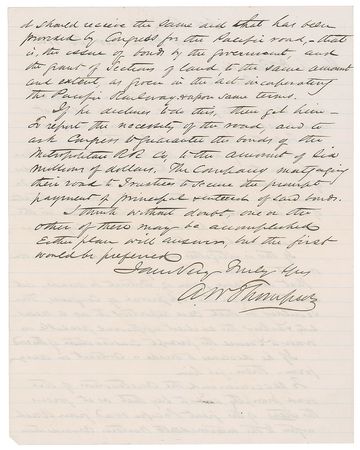 it should receive the same aid that has been
provided by Congress for the Pacific road, - that
is, the issue of bonds by the government, and
the grant of sections of land to the same amount
and extent, as given in the act incorporating
the Pacific Railway & upon same terms.
If he declines to do this, then get him -
To report the necessity of the road, and to
ask Congress to guarantee the bonds of the
Metropolitan RR Co to the amount of Six
millions of dollars. The Company mortgaging
their road to Trustees to secure the prompt
payment of principal & interest of said bonds.
I think without doubt, one or the
other of these may be accomplished
Either plan will answer, but the first
would be preferred
I am Very Truly Yrs
A. W. Thompson